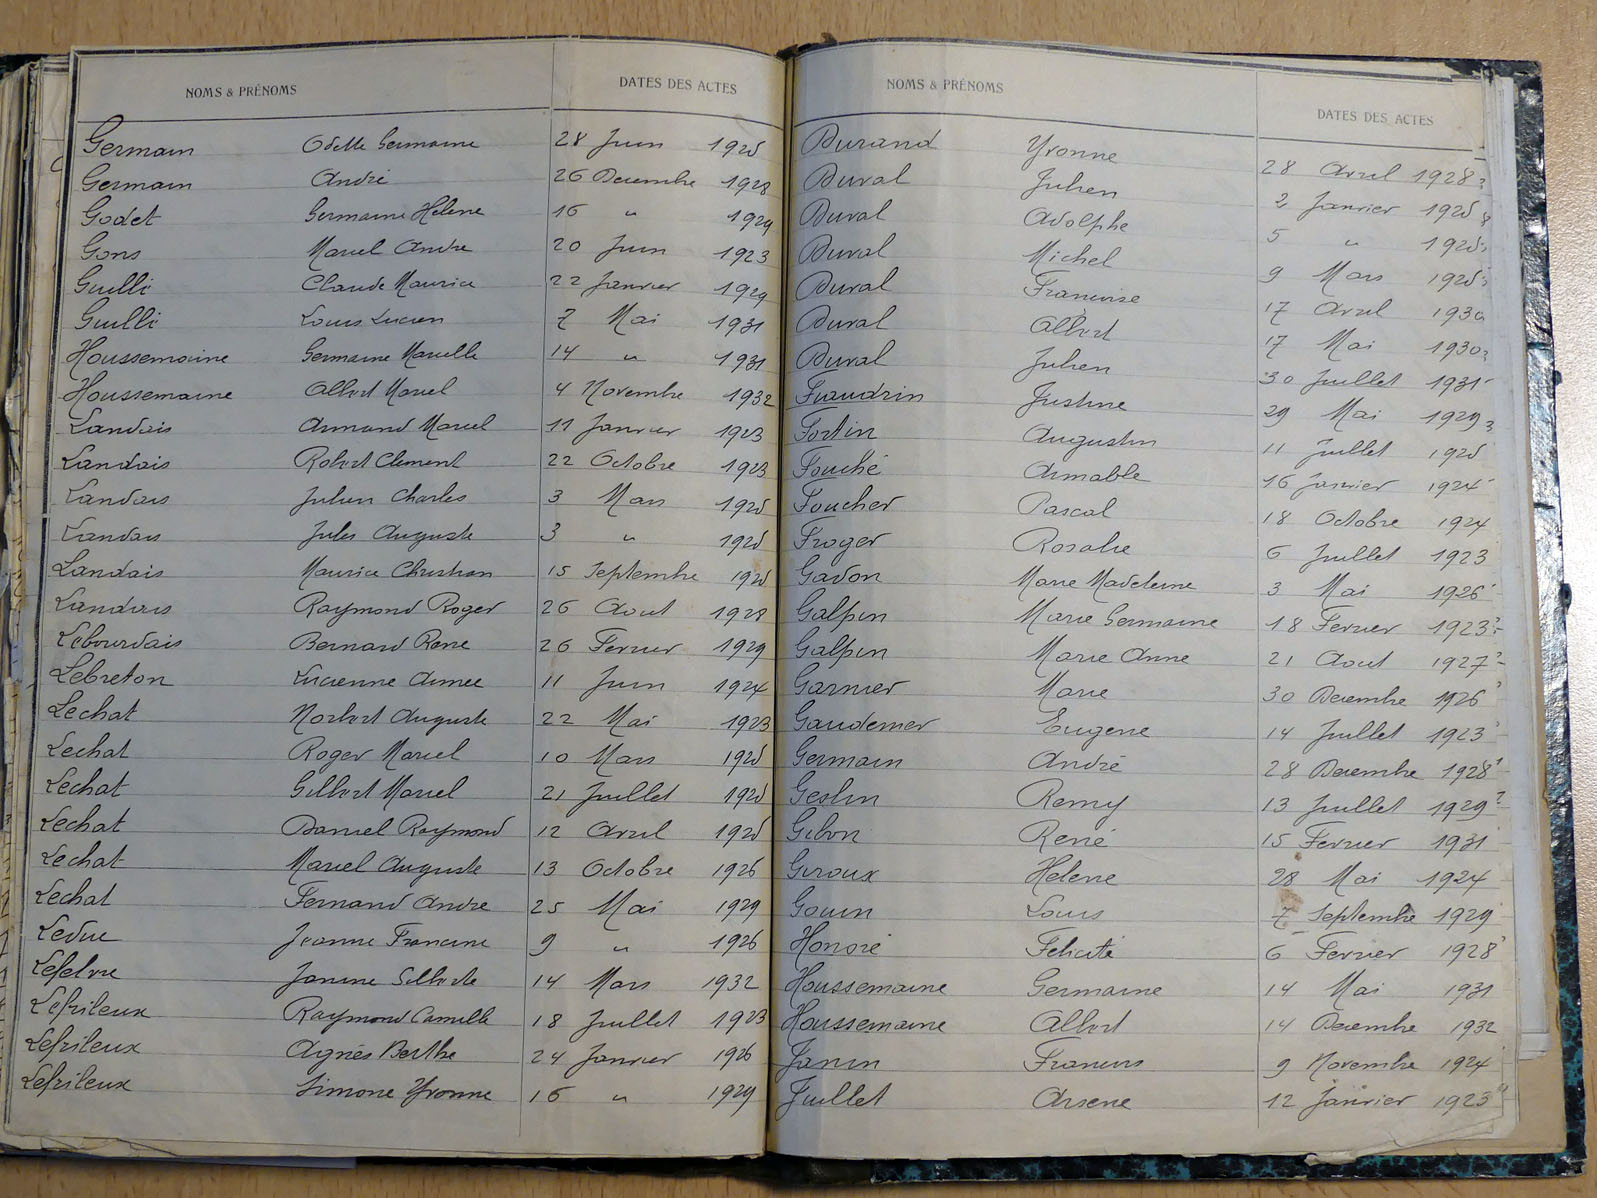 NOMS & PRÉNOMS DATES DES ACTES
Germain Odette Germaine 28 Juin 1925
Germain André 26 Decembre 1928
Godet Germaine Helene 16 " 1929
Gons Marcel Andre 20 Juin 1923
Guilli Claude Maurice 22 Janvier 1929
Guilli Louis Lucien 7 Mai 1931
Houssemaine Germaine Marcelle 14 " 1931
Houssemaine Albert Marcel 4 Novembre 1932
Landais Armand Marcel 11 Janvier 1923
Landais Robert Clement 22 Octobre 1923
Landais Julien Charles 3 Mars 1925
Landais Jules Auguste 3 " 1925
Landais Maurice Christian 15 Septembre 1925
Landais Raymond Roger 26 Aout 1928
Lebourdais Bernard Rene 26 Fevrier 1929
Lebreton Lucienne Aimee 11 Juin 1924
Lechat Norbert Auguste 22 Mai 1923
Lechat Roger Marcel 10 Mars 1925
Lechat Gilbert Marcel 21 Juillet 1925
Lechat Daniel Raymond 12 Avril 1925
Lechat Marcel Auguste 13 Octobre 1926
Lechat Fernand Andre 25 Mai 1929
Leduc Jeanne Francine 9 " 1926
Lefebvre Janine Gilberte 14 Mars 1932
Lefrileux Raymond Camille 18 Juillet 1923
Lefrileux Agnès Berthe 24 Janvier 1926
Lefrileux Simone Yvonne 16 " 1929
NOMS & PRÉNOMS DATES DES ACTES
Durand Yvonne 28 Avril 1928
Duval Julien 2 Janvier 1925
Duval Adolphe 5 " 1925
Duval Michel 9 Mars 1925
Duval Francoise 17 Avril 1930
Duval Albert 17 Mai 1930
Duval Julien 30 Juillet 1931
Flaudrin Justine 29 Mai 1929
Fortin Augustin 11 Juillet 1925
Fouché Aimable 16 Janvier 1924
Foucher Pascal 18 Octobre 1924
Froger Rosalie 6 Juillet 1923
Gadon Marie Madeleine 3 Mai 1926
Galpin Marie Germaine 18 Fevrier 1923
Galpin Marie Anne 21 Aout 1927
Garnier Marie 30 Decembre 1926
Gaudemer Eugene 14 Juillet 1923
Germain André 28 Decembre 1928
Geslin Remy 13 Juillet 1929
Gibon René 15 Fevrier 1931
Giroux Helene 28 Mai 1924
Gouin Louis 7 Septembre 1929
Honoré Felicité 6 Fevrier 1928
Houssemaine Germaine 14 Mai 1931
Houssemaine Albert 14 Decembre 1932
Janin Francois 9 Novembre 1924
Juillet Arsene 12 Janvier 1923